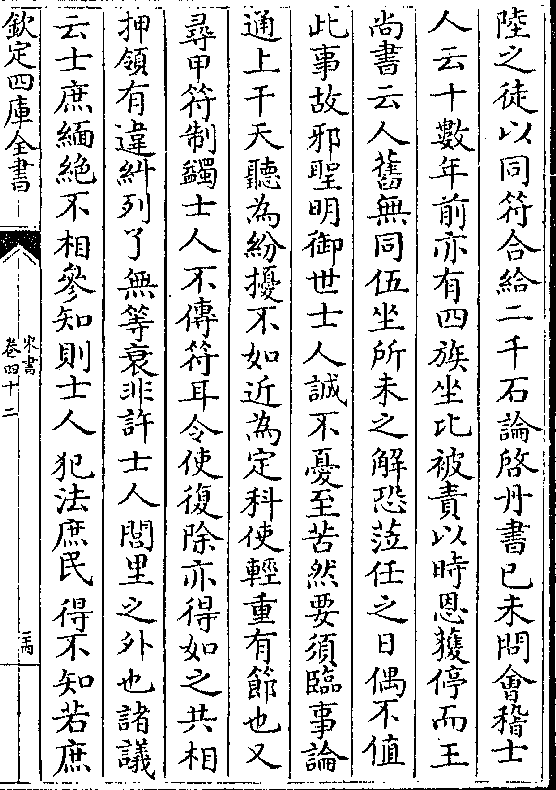 陸之徒以同符合給二千石論啓丹書已未問會稽士
人云十數年前亦有四族坐比被責以時恩獲停而王
尚書云人舊無同伍坐所未之解恐蒞任之日偶不值
此事故邪聖明御世士人誠不憂至苦然要須臨事論
通上干天聽為紛擾不如近為定科使輕重有節也又
尋甲符制蠲士人不傳符耳令使復除亦得如之共相
押領有違糾列了無等衰非許士人閭里之外也諸議
云士庶緬絶不相參知則士人犯法庶民得不知若庶
欽定四庫全書
宋書
卷四十二